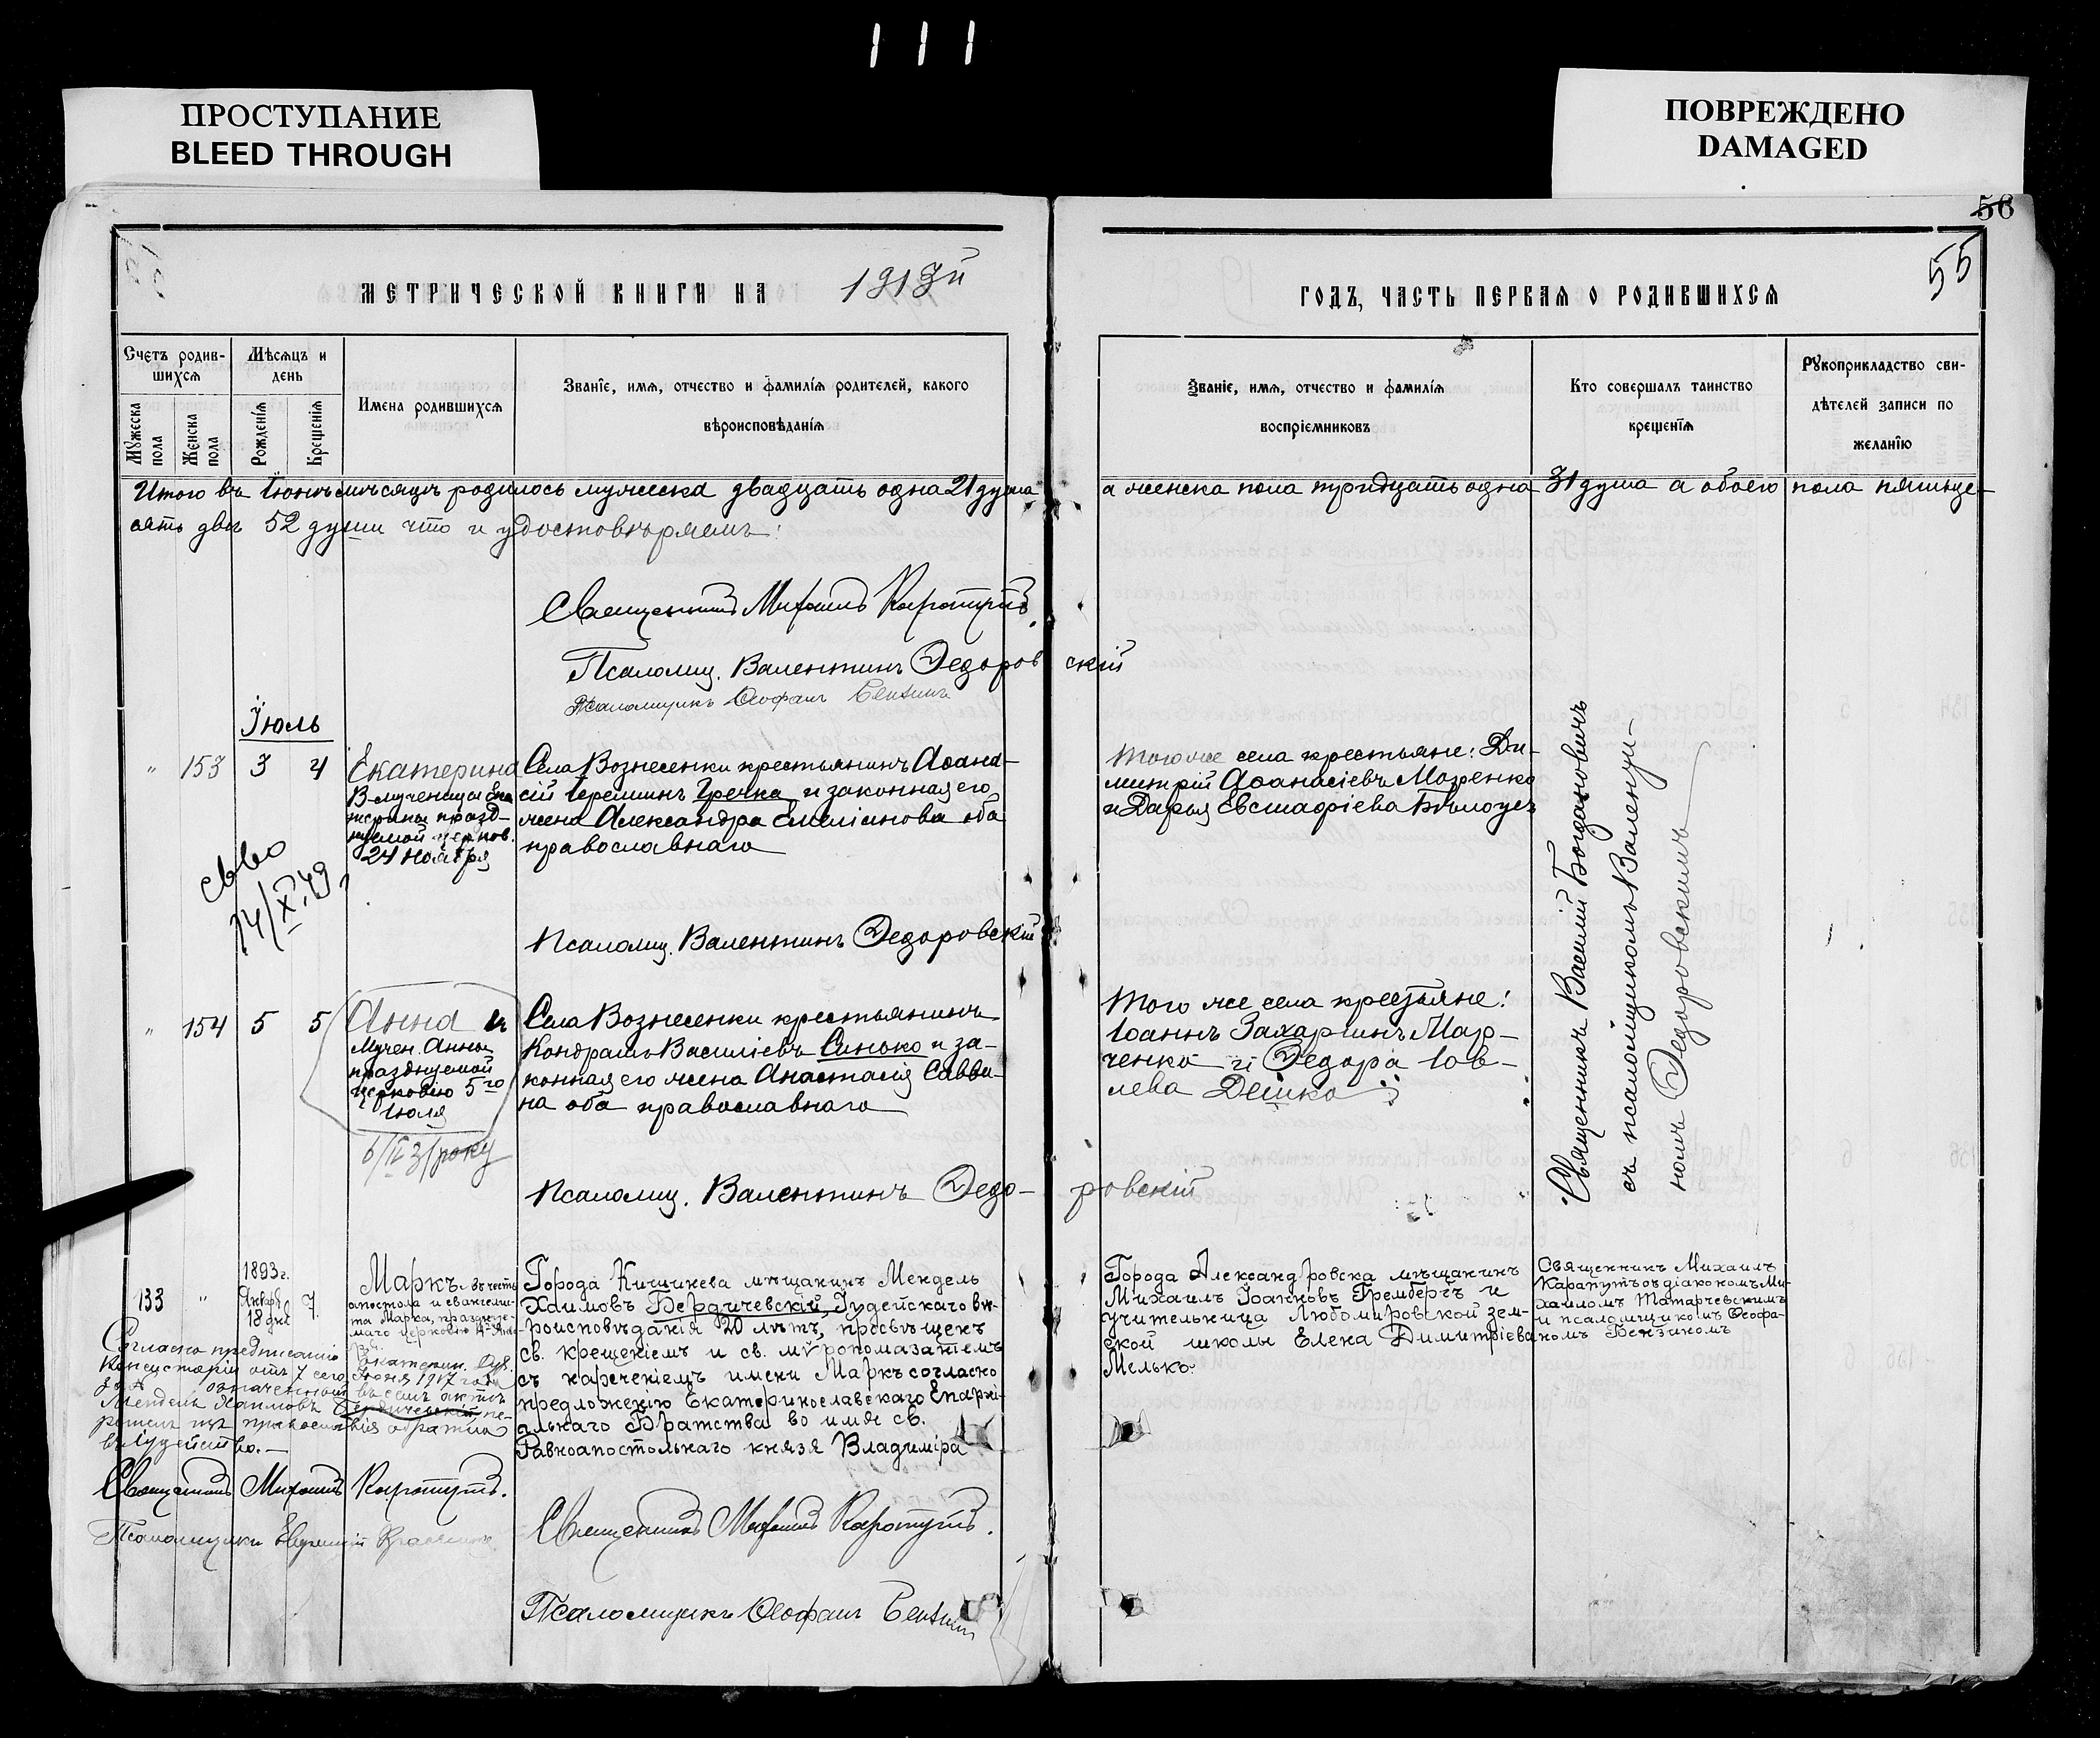 111
ПРОСТУПАНИЕ
BLEED THROUGH
ПОВРЕЖДЕНО
DAMAGED
56
55
МЕТРИЧЕСКОЙ КНИГИ НА 1913й
ГОДЪ, ЧАСТЬ ПЕРВАЯ О РОДИВШИХСЯ
Счетъ родив-
шихся
Мужеска пола
Женска пола
Мѣсяцъ и
день
Рожденія
Крещенія
Имена родившихся
Званіе, имя, отчество и фамилія родителей, какого
вѣроисповѣданія
Званіе, имя, отчество и фамилія
воспріемниковъ
Кто совершалъ таинство
крещенія
Рукоприкладство сви-
дѣтелей записи по
желанію
Итого въ Іюнѣ мѣсяцѣ родилось мужеска двадцать одна 21 душа а женска пола тридцать одна 31 душа а обоего пола пятьде-
сятъ двѣ 52 души что и удостовѣряемъ:
Священникъ Михаилъ Карапутъ
Псаломщ. Валентинъ Ѳедоровскій
Псаломщикъ Ѳеофанъ Бензинъ
Іюль
" 153 3 4
Екатерина
В-мученицы Ека-
терины празд-
нуемой церков.
24 ноября
Села Вознесенки крестьянинъ Аѳана-
сій Іереминъ Гречка и законная его
жена Александра Емеліанова оба
православнаго
Тогоже села крестьяне: Ди-
митрій Аѳанасіевъ Мазренко
и Дарья Евстафіева Бѣлоусъ
Священникъ Василій Богдановичъ
съ псаломщикомъ Валенти-
номъ Ѳедоровскимъ
св-во
14/X 49
Псаломщ. Валентинъ Ѳедоровскій
" 154 5 5
Анна
Мучен. Анны
празднуемой
церковію 5го
Іюля
6/IV 31 року
Села Вознесенки крестьянинъ
Кондратъ Василіевъ Синько и за-
конная его жена Анастасія Савви-
на оба православнаго
Того же села крестьяне:
Іоаннъ Захаріинъ Мар-
ченко и Ѳедора Іов-
лева Дешко
Псаломщ. Валентинъ Ѳедоровскій
133 "
1893г.
Январ.
18 дня
7
Маркъ въ честь
апостола и евангели-
ста Марка, праздну-
емаго церковію 4 Янва-
ря.
Города Кишинева мѣщанинъ Мендель
Хаимовъ Бердичевскій, Іудейскаго вѣ-
роисповѣданія 20 лѣтъ, просвѣщенъ
св. крещеніемъ и св. мѵропомазаніемъ
съ нареченіемъ имени Маркъ согласно
предложенію Екатеринославскаго Епархі-
альнаго Братства во имя св.
Равноапостольнаго князя Владиміра
Города Александровска мѣщанинъ
Михаилъ Іоанновъ Грембергъ и
учительница Любомировской зем-
ской школы Елена Димитріева
Мелько.
Священникъ Михаилъ
Карапутъ съ діакономъ Ми-
хаиломъ Татарчевскимъ
и псаломщикомъ Ѳеофа-
номъ Бензиномъ
Согласно предписанію Екатерин. Дух.
Консисторіи отъ 7 сего Іюня 1917 года
означенный въ семъ актѣ
Мендель Хаимовъ Бердичевскій пе-
решелъ изъ православія обратно
въ Іудейство.—
Священникъ Михаилъ Карапутъ.
Псаломщикъ
Священникъ Михаилъ Карапутъ.
Псаломщикъ Ѳеофанъ Бензинъ